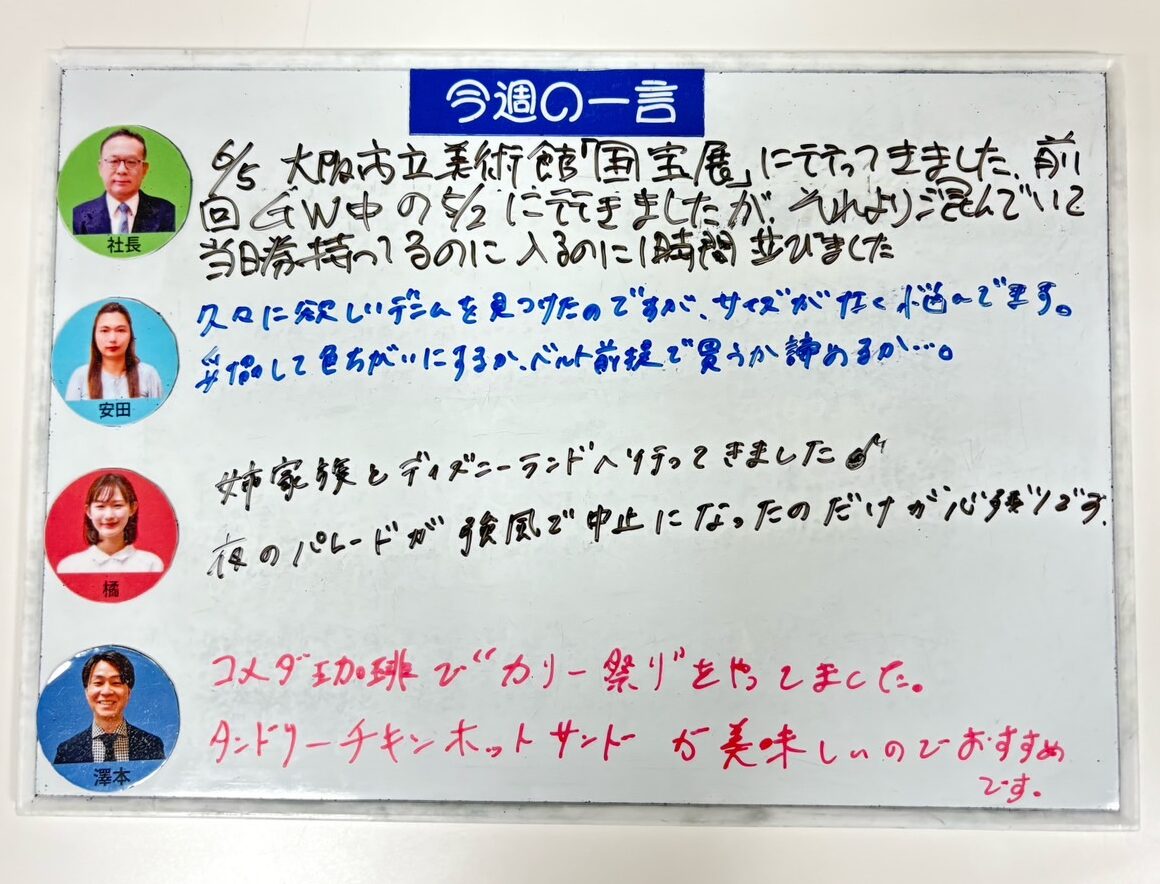 今週の一言
社長
6/5 大阪市立美術館「国宝展」に行ってきました、前
回GW中の5/2に行きましたが、それより混んでいて
当日券持ってるのに入るのに1時間並びました
安田
久々に欲しいデニムを見つけたのですが、サイズがなく悩んでます。
妥協して色ちがいにするか、ベルト前提で買うか諦めるか…。
橘
姉家族とディズニーランドへ行ってきました♪
夜のパレードが強風で中止になったのだけが心残りです。
澤本
コメダ珈琲で“カリー祭り”をやってました。
タンドリーチキンホットサンドが美味しいのでおすすめ
です。